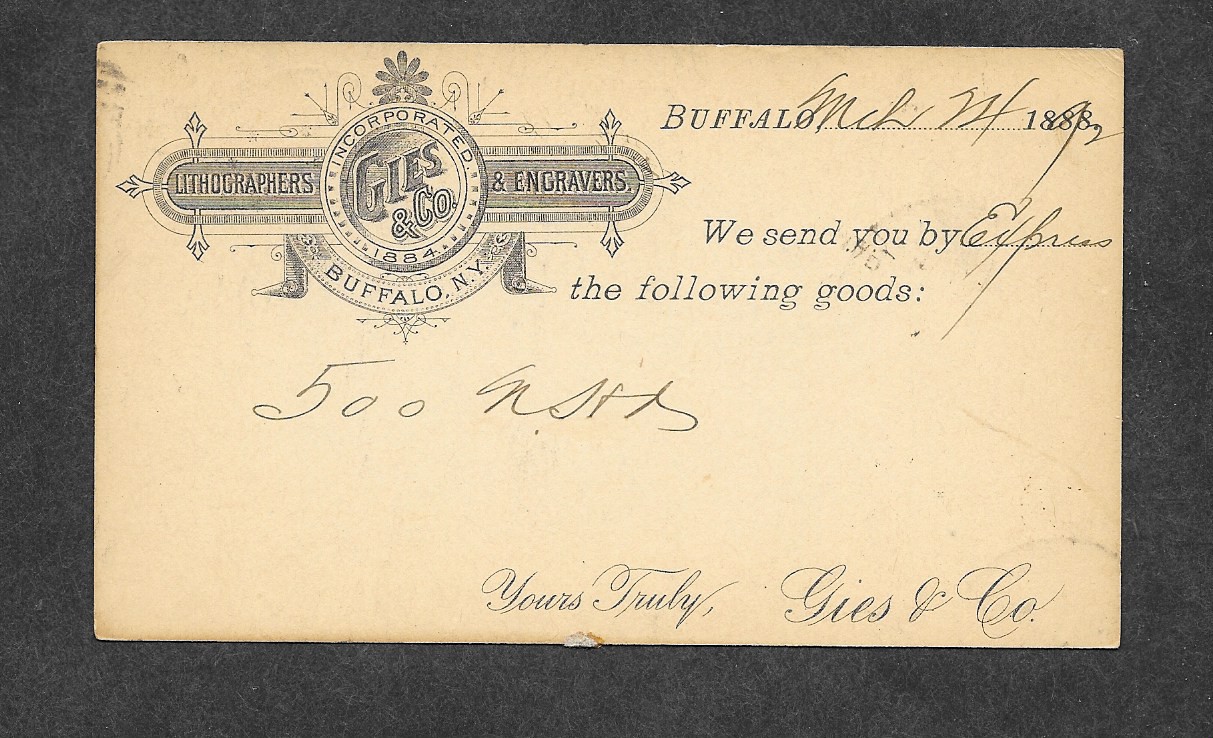 INCORPORATED.
LITHOGRAPHERS GIES & CO. & ENGRAVERS.
1884
BUFFALO, N.Y.
BUFFALO, Mch 24 1892
We send you by Express
the following goods:
500
Yours Truly, Gies & Co.